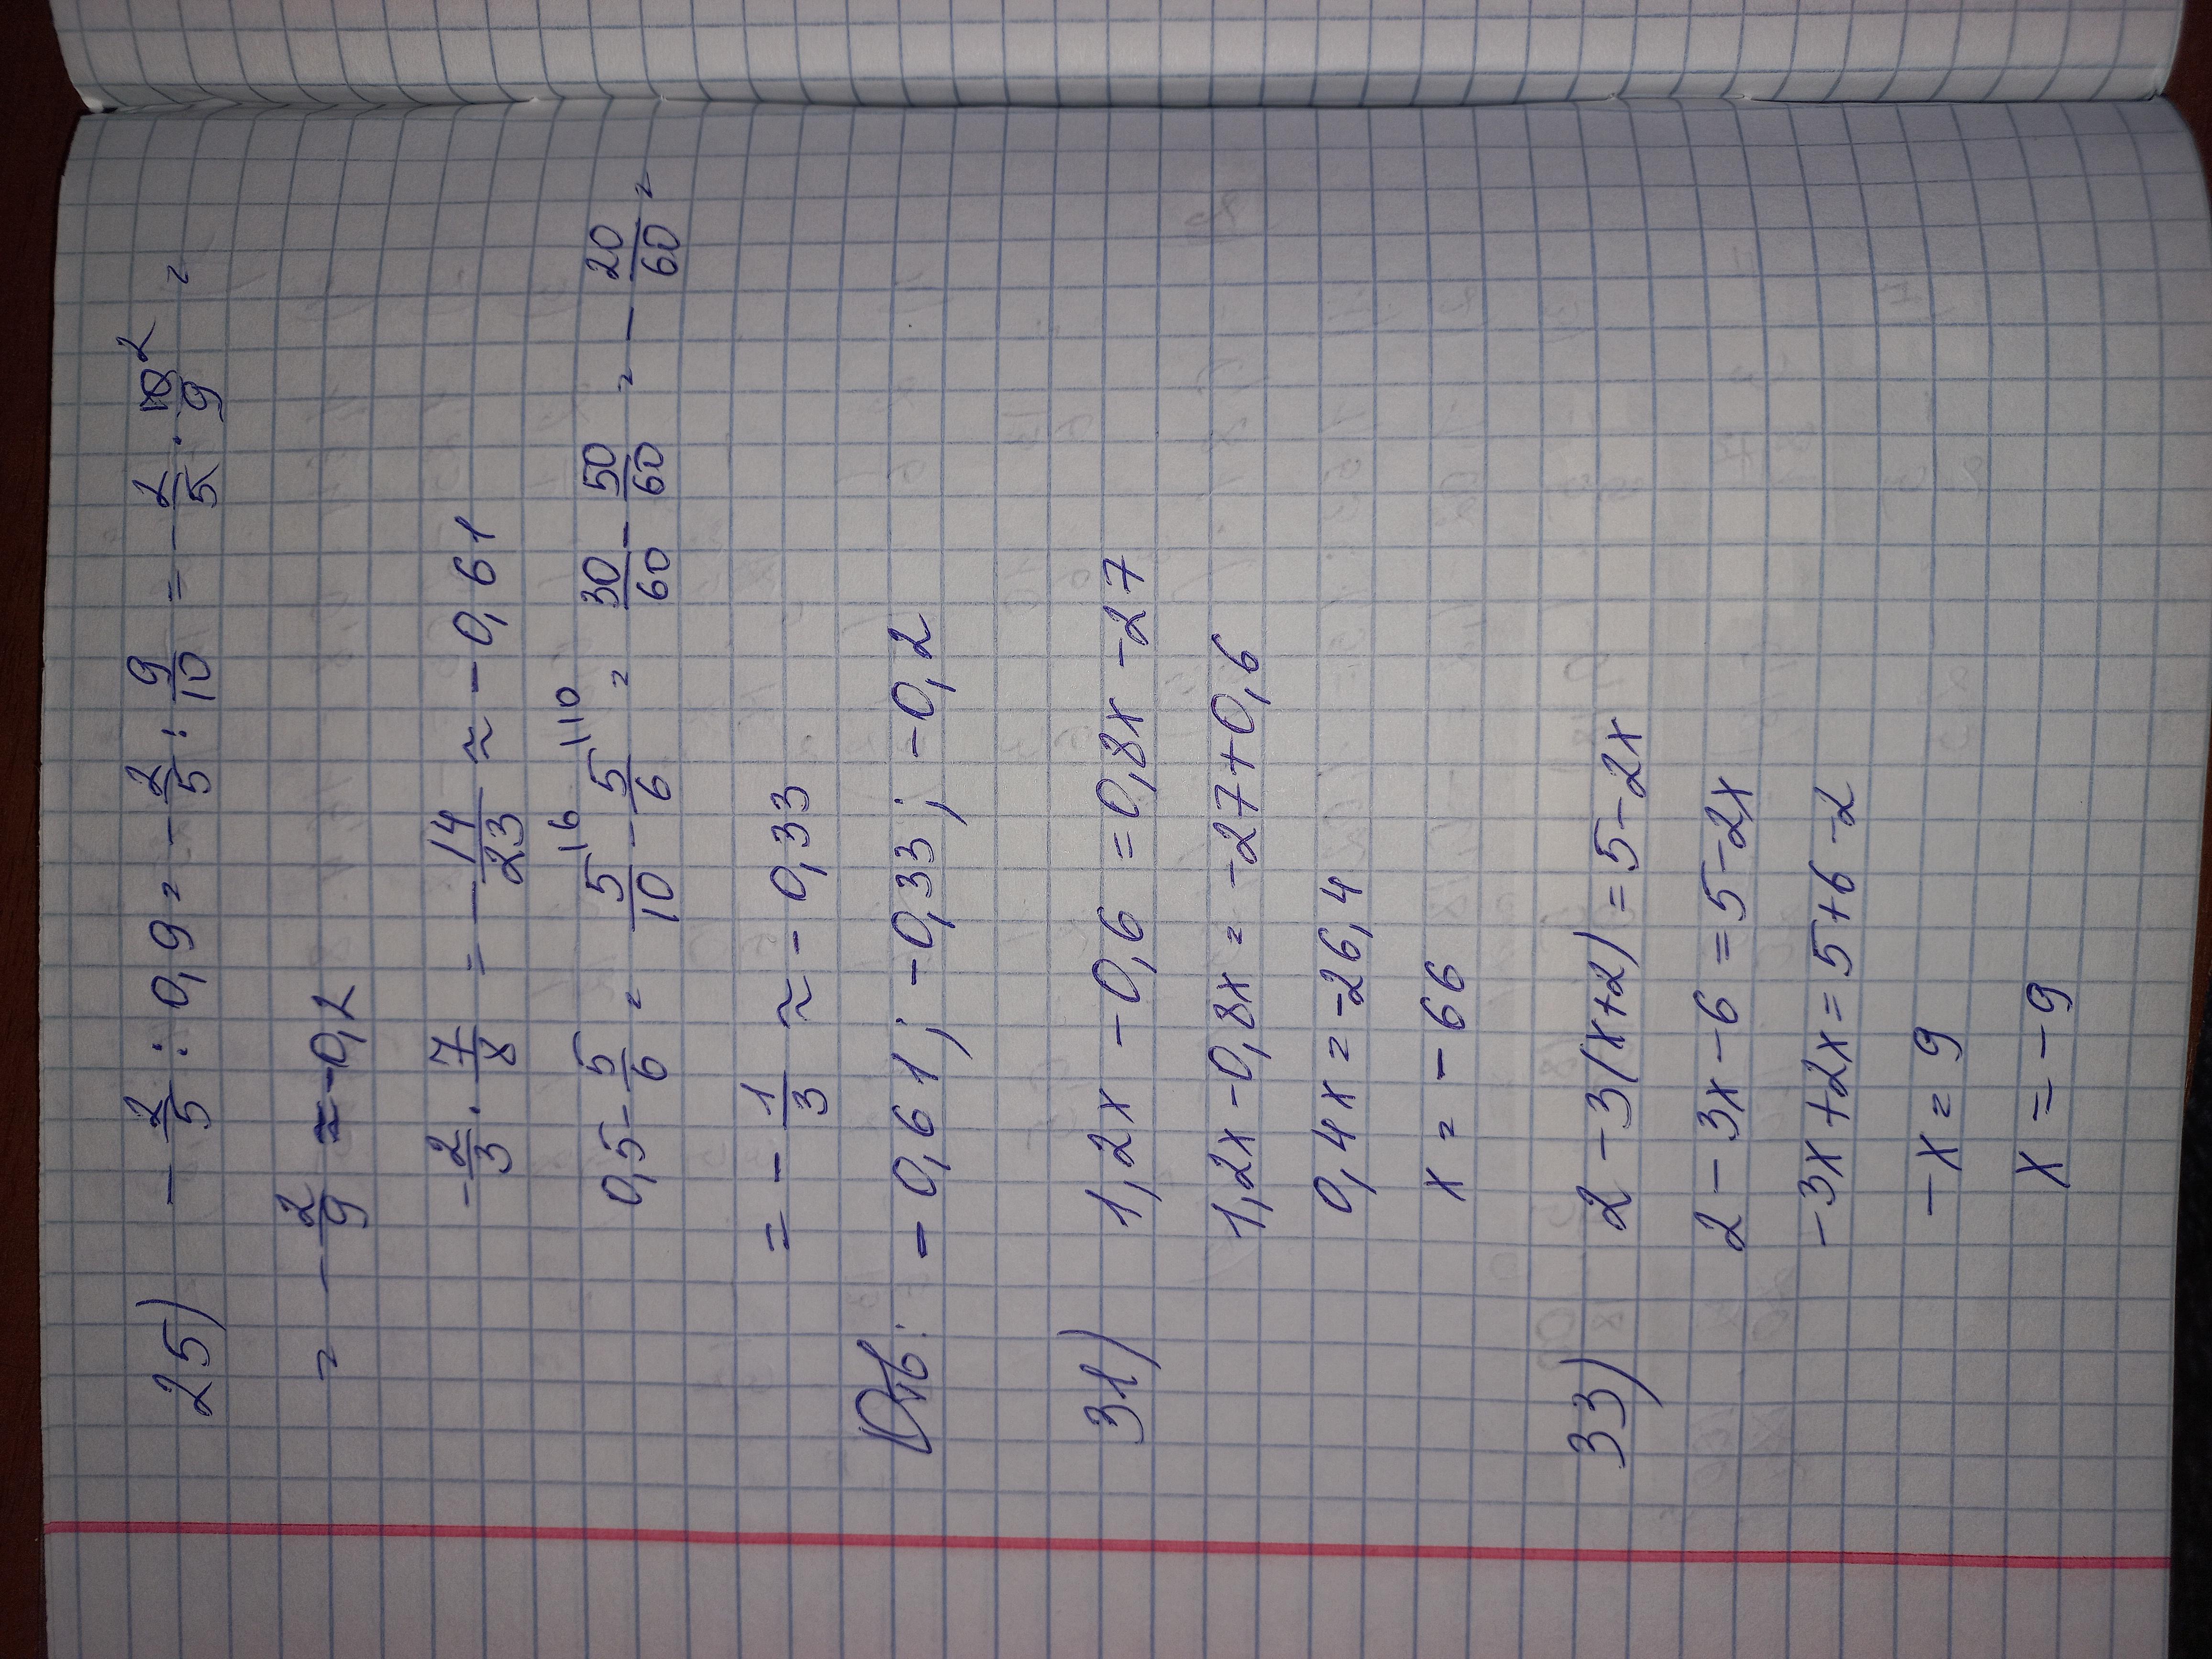 25) - 2/5 : 0,9 = - 2/5 : 9/10 = - 2/5 · 10 2/9 =
= - 2/9 ≈ -0,2
- 2/3 · 7/8 = - 14/23 ≈ - 0,61
0,5 - 5/6 = 5/10 |6 - 5/6 |10 = 30/60 - 50/60 = - 20/60 =
= - 1/3 ≈ - 0,33
Отв: - 0,61; -0,33; -0,2
31) 1,2x - 0,6 = 0,8x - 27
1,2x - 0,8x = -27 + 0,6
0,4x = -26,4
x = - 66
33) 2 - 3(x+2) = 5 - 2x
2 - 3x - 6 = 5 - 2x
-3x + 2x = 5 + 6 - 2
- x = 9
x = - 9